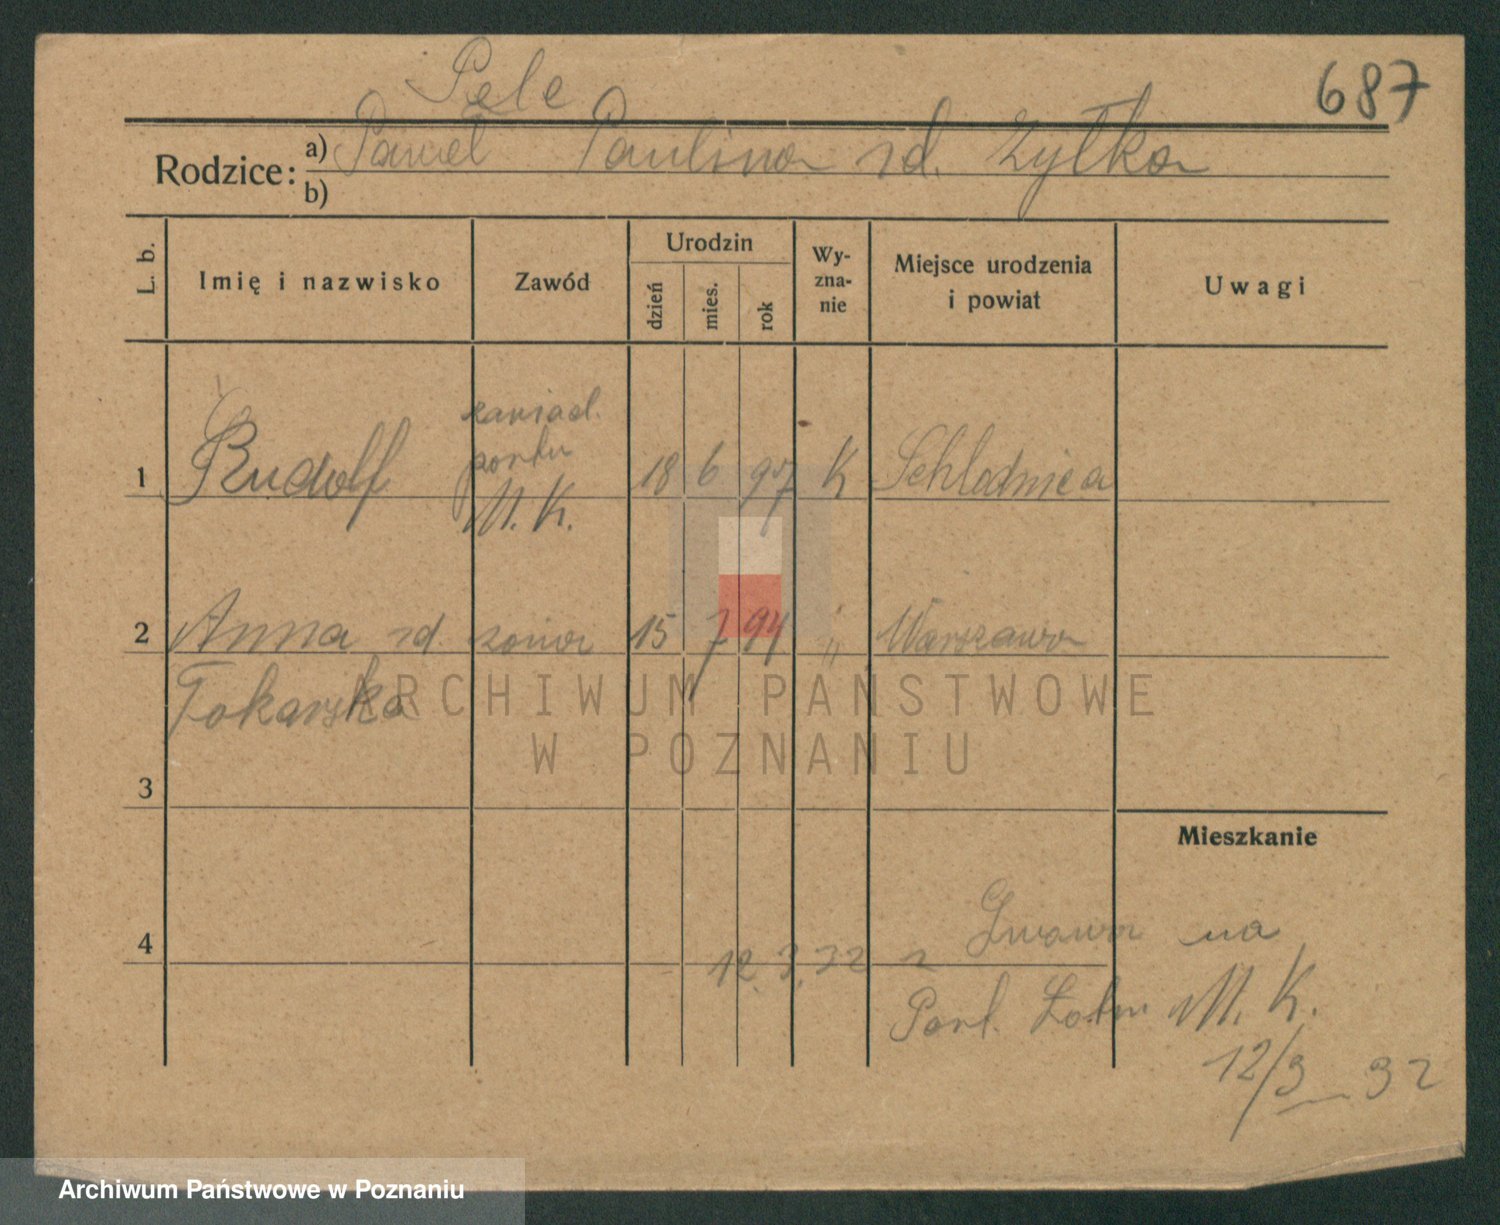 Pele
687
Rodzice: a) Paweł Paulina zd. Żyłka
b)
L. b.
Imię i nazwisko
Zawód
Urodzin
dzień
mies.
rok
Wy-
zna-
nie
Miejsce urodzenia
i powiat
Uwagi
zawiad.
portu
1 Rudolf M. K. 18 6 97 K Schlodnica
2 Anna zd. żona 15 7 94 " Warszawa
Tokarska
3
Mieszkanie
4
12.3.32 z Ławica na
Port. Lotn M. K.
12/3 32
ARCHIWUM PAŃSTWOWE
W POZNANIU
Archiwum Państwowe w Poznaniu